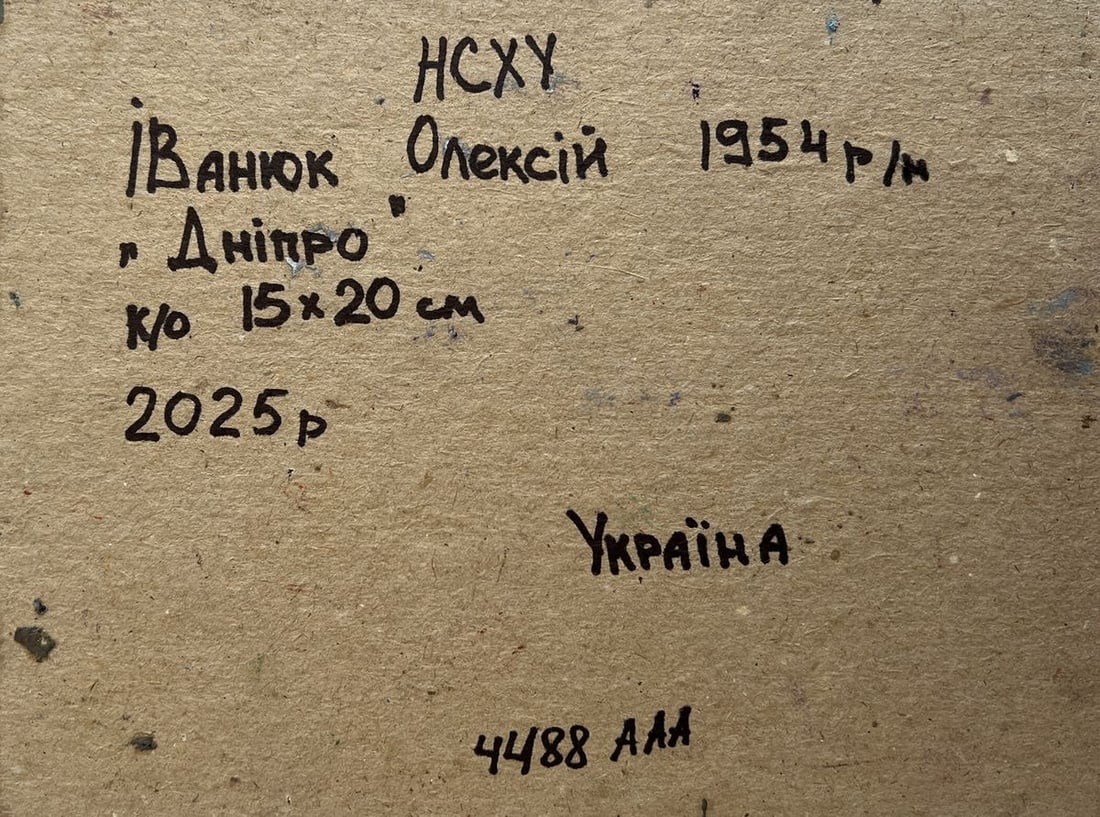 НСХУ
Іванюк Олексій 1954 р/н
„Дніпро"
к/о 15×20 см
2025 р
Україна
4488 ААА